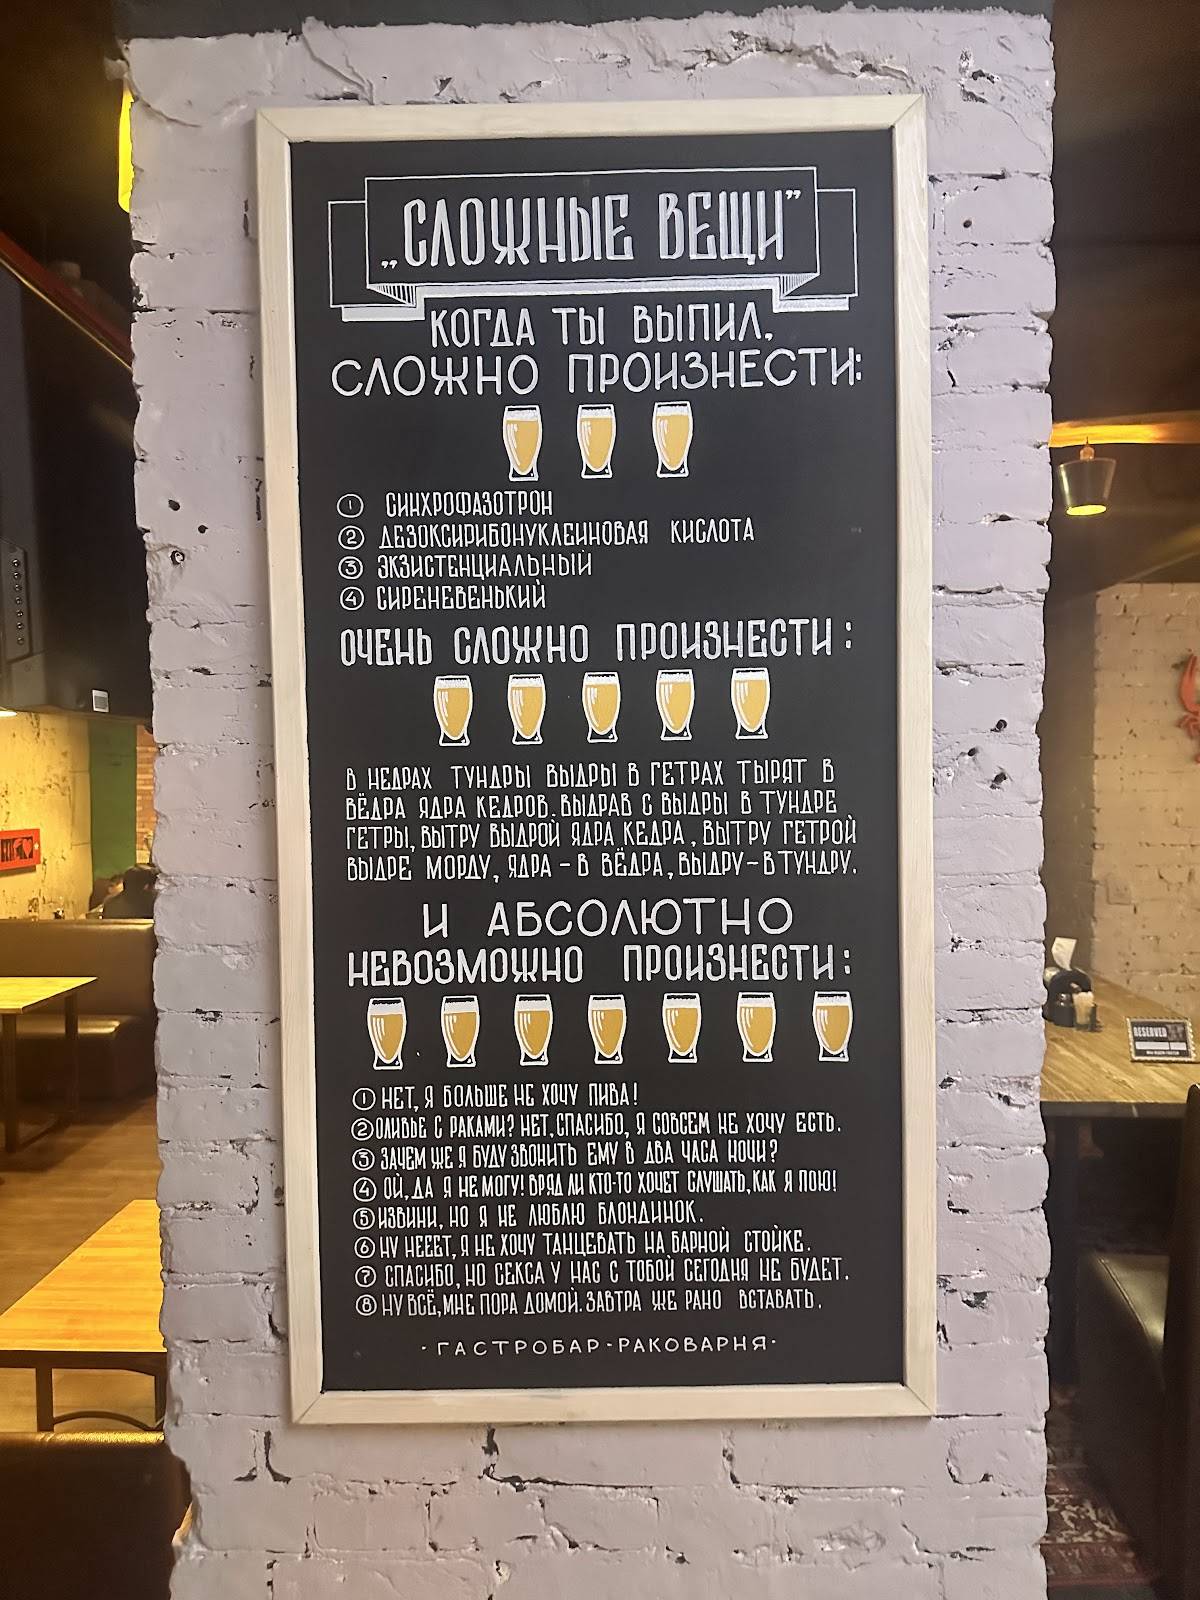 „СЛОЖНЫЕ ВЕЩИ”
КОГДА ТЫ ВЫПИЛ,
СЛОЖНО ПРОИЗНЕСТИ:
① СИНХРОФАЗОТРОН
② ДЕЗОКСИРИБОНУКЛЕИНОВАЯ КИСЛОТА
③ ЭКЗИСТЕНЦИАЛЬНЫЙ
④ СИРЕНЕВЕНЬКИЙ
ОЧЕНЬ СЛОЖНО ПРОИЗНЕСТИ:
В НЕДРАХ ТУНДРЫ ВЫДРЫ В ГЕТРАХ ТЫРЯТ В
ВЁДРА ЯДРА КЕДРОВ. ВЫДРАВ С ВЫДРЫ В ТУНДРЕ
ГЕТРЫ, ВЫТРУ ВЫДРОЙ ЯДРА КЕДРА, ВЫТРУ ГЕТРОЙ
ВЫДРЕ МОРДУ, ЯДРА - В ВЁДРА, ВЫДРУ - В ТУНДРУ.
И АБСОЛЮТНО
НЕВОЗМОЖНО ПРОИЗНЕСТИ:
① НЕТ, Я БОЛЬШЕ НЕ ХОЧУ ПИВА!
② ОЛИВЬЕ С РАКАМИ? НЕТ, СПАСИБО, Я СОВСЕМ НЕ ХОЧУ ЕСТЬ.
③ ЗАЧЕМ ЖЕ Я БУДУ ЗВОНИТЬ ЕМУ В ДВА ЧАСА НОЧИ?
④ ОЙ, ДА Я НЕ МОГУ! ВРЯД ЛИ КТО-ТО ХОЧЕТ СЛУШАТЬ, КАК Я ПОЮ!
⑤ ИЗВИНИ, НО Я НЕ ЛЮБЛЮ БЛОНДИНОК.
⑥ НУ НЕЕЕТ, Я НЕ ХОЧУ ТАНЦЕВАТЬ НА БАРНОЙ СТОЙКЕ.
⑦ СПАСИБО, НО СЕКСА У НАС С ТОБОЙ СЕГОДНЯ НЕ БУДЕТ.
⑧ НУ ВСЁ, МНЕ ПОРА ДОМОЙ. ЗАВТРА ЖЕ РАНО ВСТАВАТЬ.
· ГАСТРОБАР - РАКОВАРНЯ ·
RESERVED